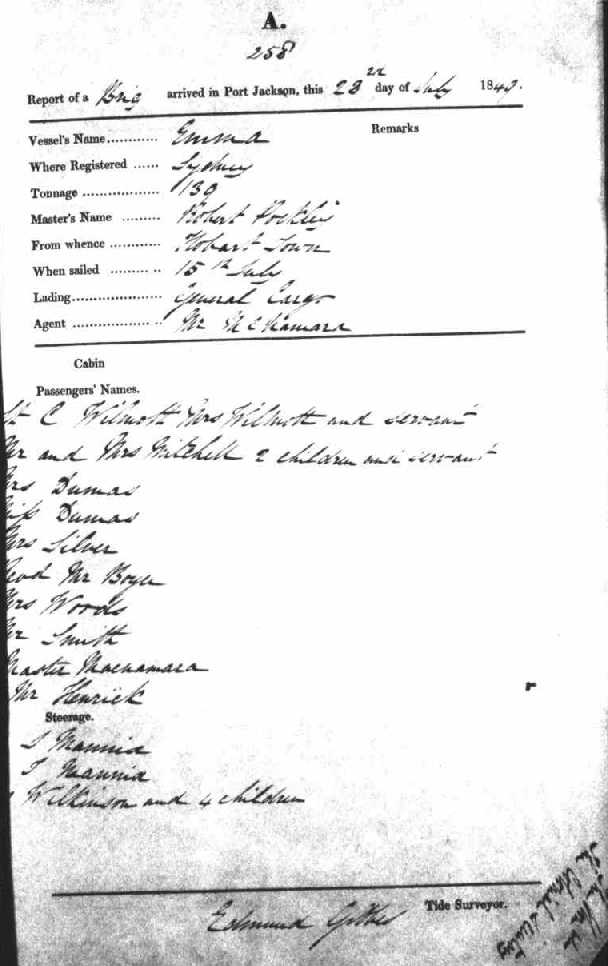 A.
258
Report of a Brig arrived in Port Jackson, this 23rd day of July 1849.
Vessel's Name............ Emma
Remarks
Where Registered ...... Sydney
Tonnage ................... 139
Master's Name ......... Robert Pockley
From whence ............ Hobart Town
When sailed ......... .. 15th July
Lading...................... General Cargo
Agent .................. .. Mr McNamara
Cabin
Passengers' Names.
Lt C Wilmott Mrs Wilmott and servant
Mr and Mrs Mitchell 2 children and servant
Mrs Dumas
Miss Dumas
Mrs Silver
Revd Mr Boyer
Mrs Woods
Mr Smith
Master Macnamara
Mr Henrick
Steerage.
Mannia
Mannia
Wilkinson and 4 children
Tide Surveyor.
Edmund Gibbes